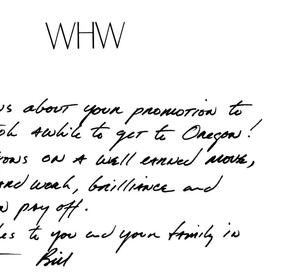 WHW
ws about your promotion to
awhile to get to Oregon!
ions on a well earned move,
ard work, brilliance and
pay off.
es to you and your family in
Bill